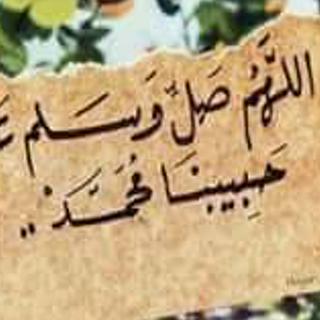 اللَّهُمَّ صَلِّ وَسَلِّم
حَبِيبِنَا مُحَمَّدْ ..